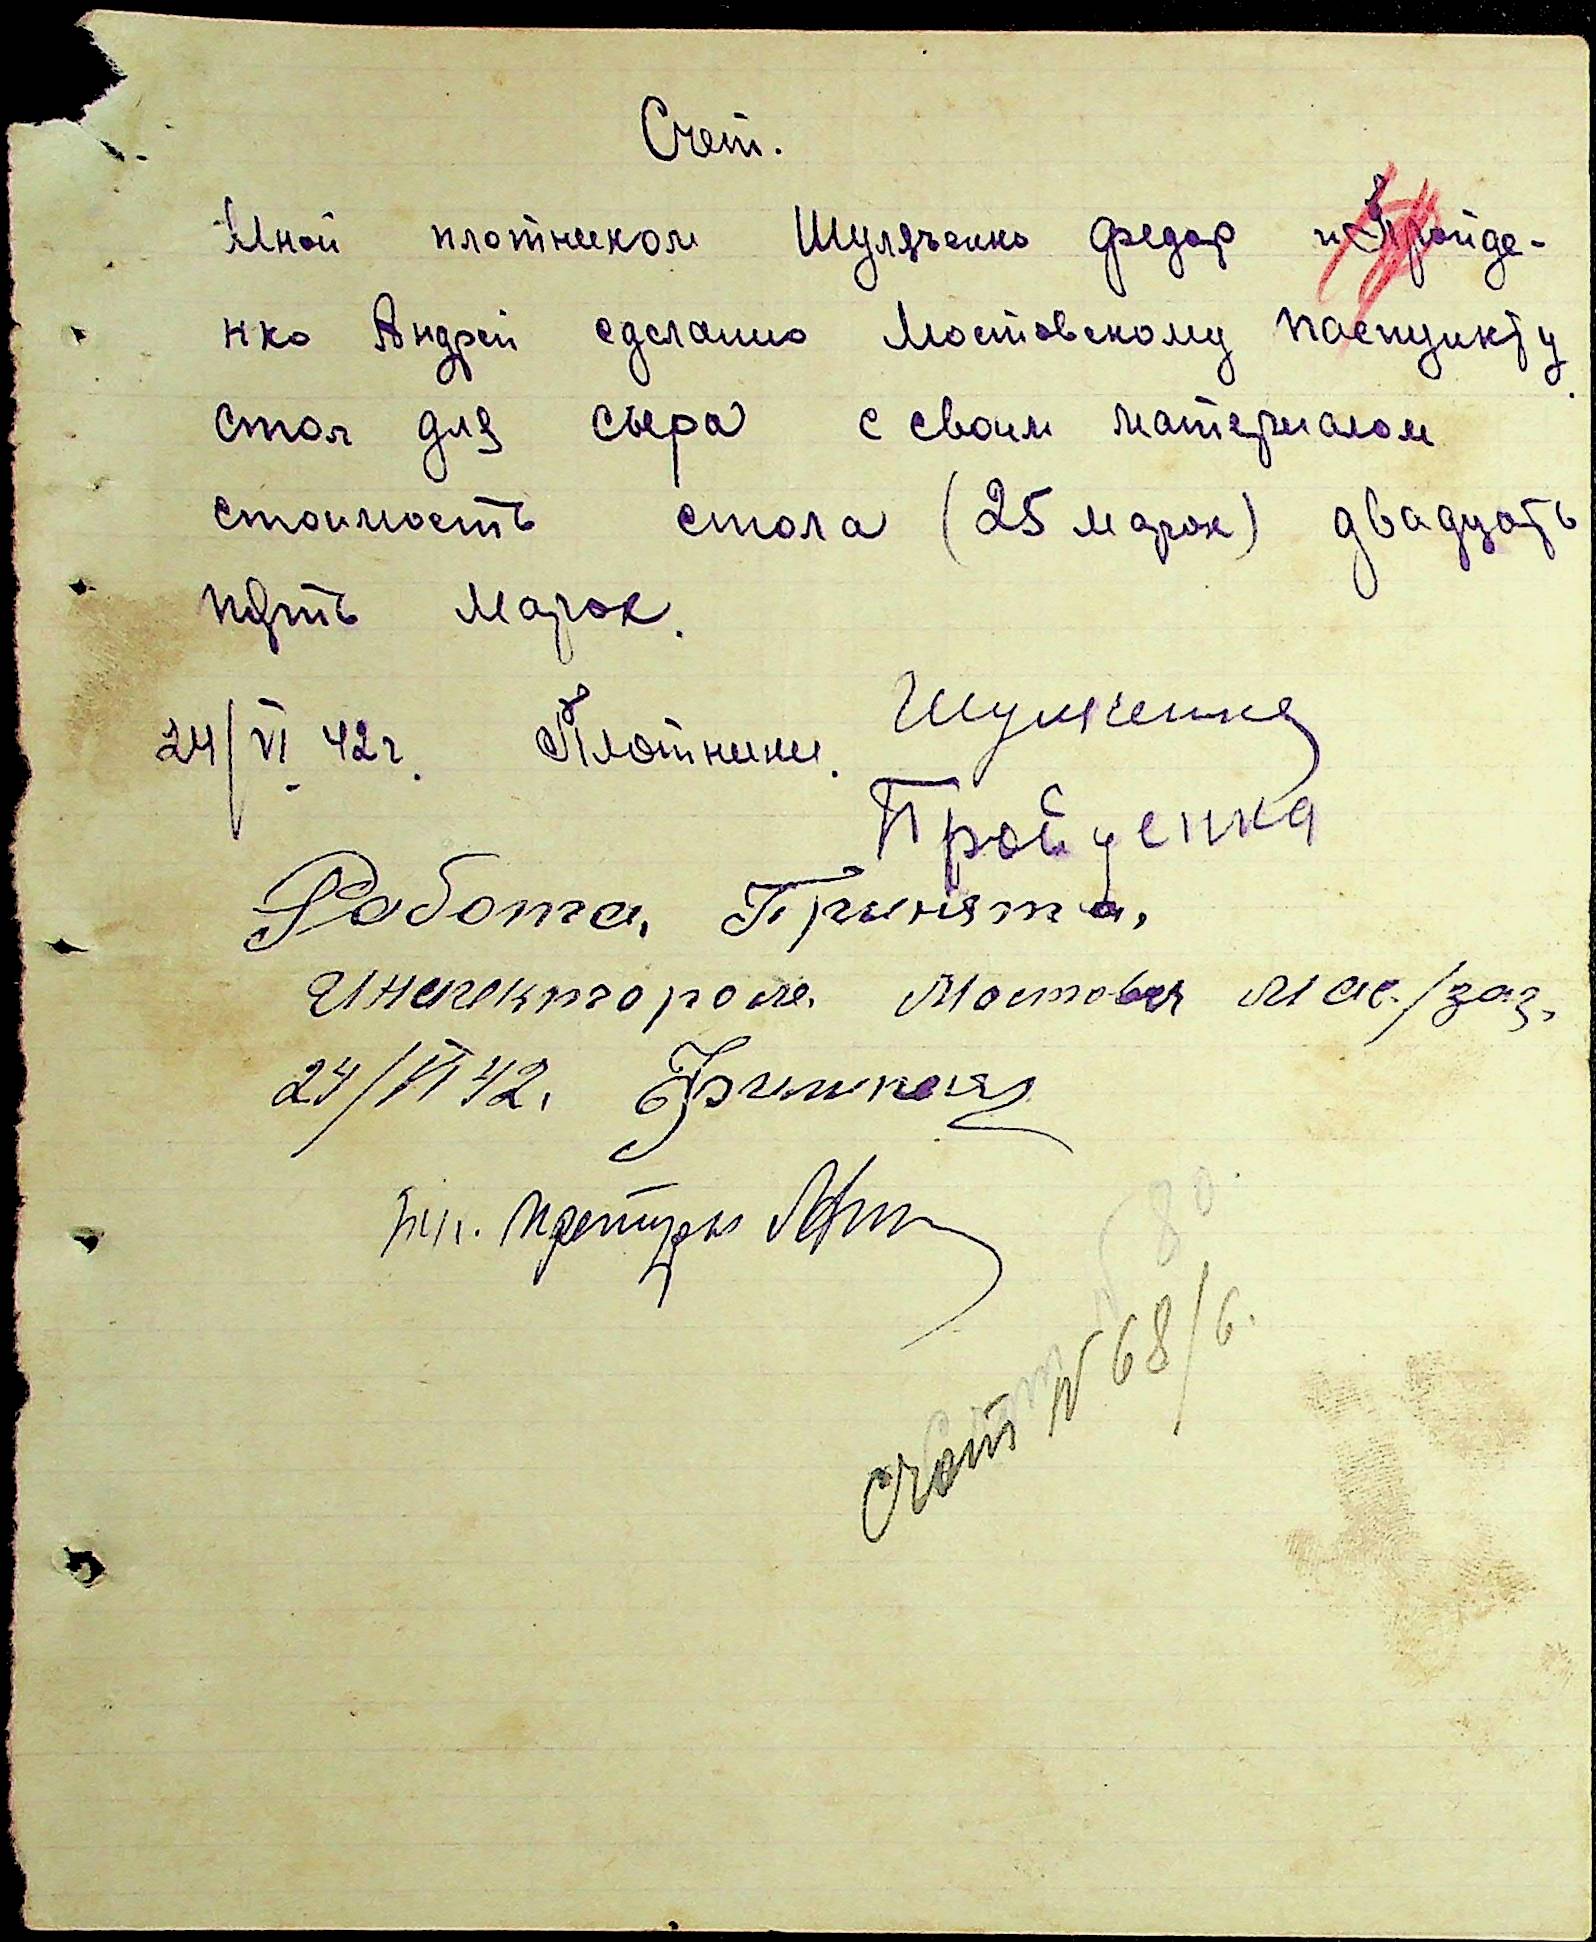 Счет.
Мной плотником Шуляченко Федор и Пройде-
нко Андрей сделанно Мостовскому паспункту
стол для сыра с своим материалом
стоимость стола (25 марок) двадцать
пять марок.
24/VI 42г. Плотники. Шуляченко
Пройденко
Работа, Принята,
Инспектором Мостовск мас./заг,
24/VI 42.
счет № 68/6.